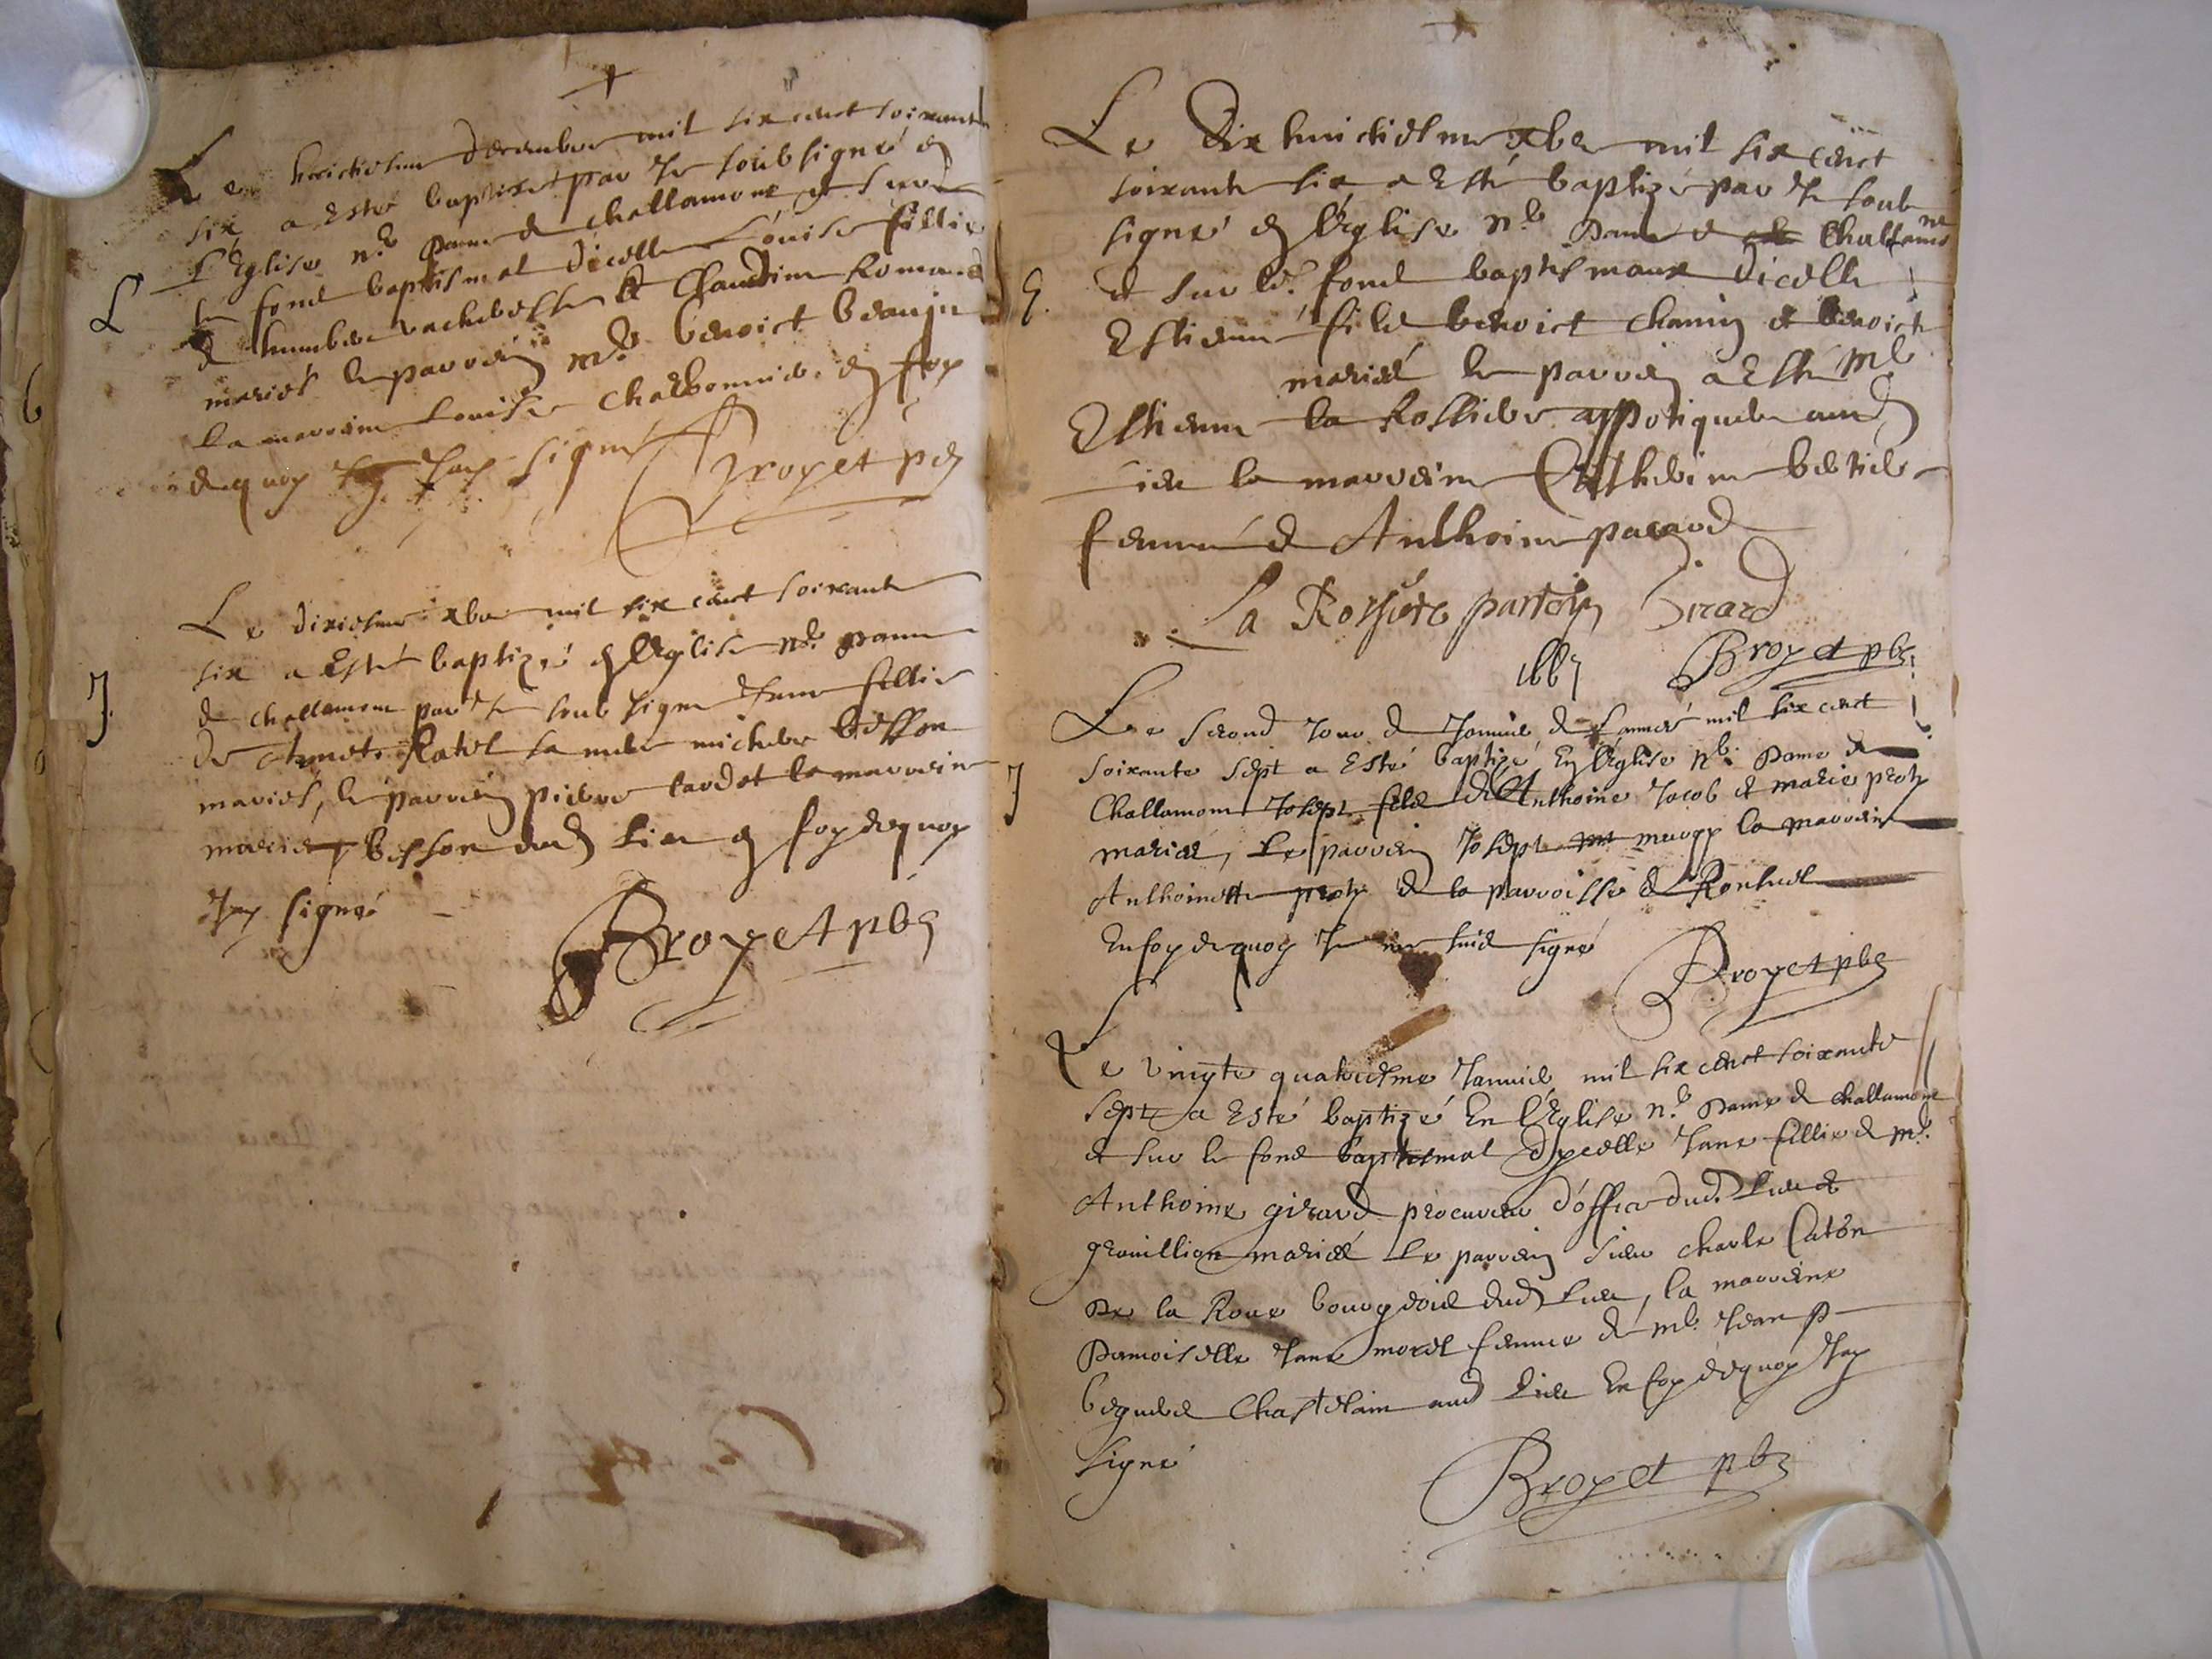 Le huictiesme decembre mil six cent soixante
six a esté baptisé par Je soubsigné en
L'Eglise n.e Dame de challamont et sur
L
le fond baptismal dicelle Louise fillie
de humber vacheresse et Claudine Romand
mariés le parrein m.e benoict beaujeu
la marreine Louise Charbonnier en foy
dequoy Jay signé Broyet pbr
Le dixiesme xbre mil six cent soixante
six a esté baptizé en leglise n.e Dame
J.
de challamont par Je soubsigné Jane fillie
de Ratel sa mere besson
mariés, le parrein pierre tardet la marreine
marie besson dud lieu en foy dequoy
Jay signé
Broyet pbr
Le Dix huictiesme xbre mil six cent
soixante six a Esté baptizé par Je soub
signé en leglise n.e Dame de Challamont
E.
et sur led. fond baptismaux dicelle
Estienne filz benoict chanin et benoicte
mariés le parrein a Esté M.e
Estienne la Rossiere appotiquere aud
lieu la marreine Catherine
femme de Anthoine pacard
La Rossiere parrein Girard
1667 Broyet pbr
Le second Jour de Janvier de L'année mil six cent
soixante sept a Esté baptizé En Leglise N.e Dame de
J
Challamont Josept filz de Anthoine Jacob et marie prost
mariés, Le parrein Josept la marreine
Anthoinette de la parroisse de Ronhuel
En foy dequoy Je me suis signé
Broyet pbr
Le vingte quatriesme Janvier mil six cent soixante
sept a Esté baptizé En L'Eglise N.e Dame de challamont
et sur le fond baptismal dycelle Jane fillie de m.e
Anthoine girard procureur d'office dud. lieu et
mariés Le parrein sieur charle Caton
De la Roue bourgeois dud lieu, la marreine
Damoiselle Jane morel femme de m.e Jean P
Chastelain aud lieu En foy dequoy Jay
signé
Broyet pbr